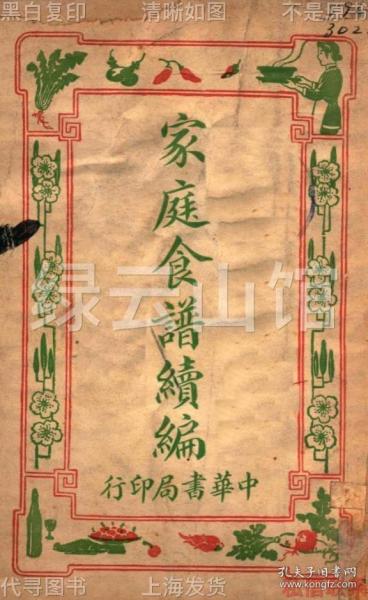 黑白复印 清晰如图 不是原书
302
家庭食譜續編
中華書局印行
绿云山馆
代寻旧书 上海发货
孔夫子旧书网
www.kongfz.com